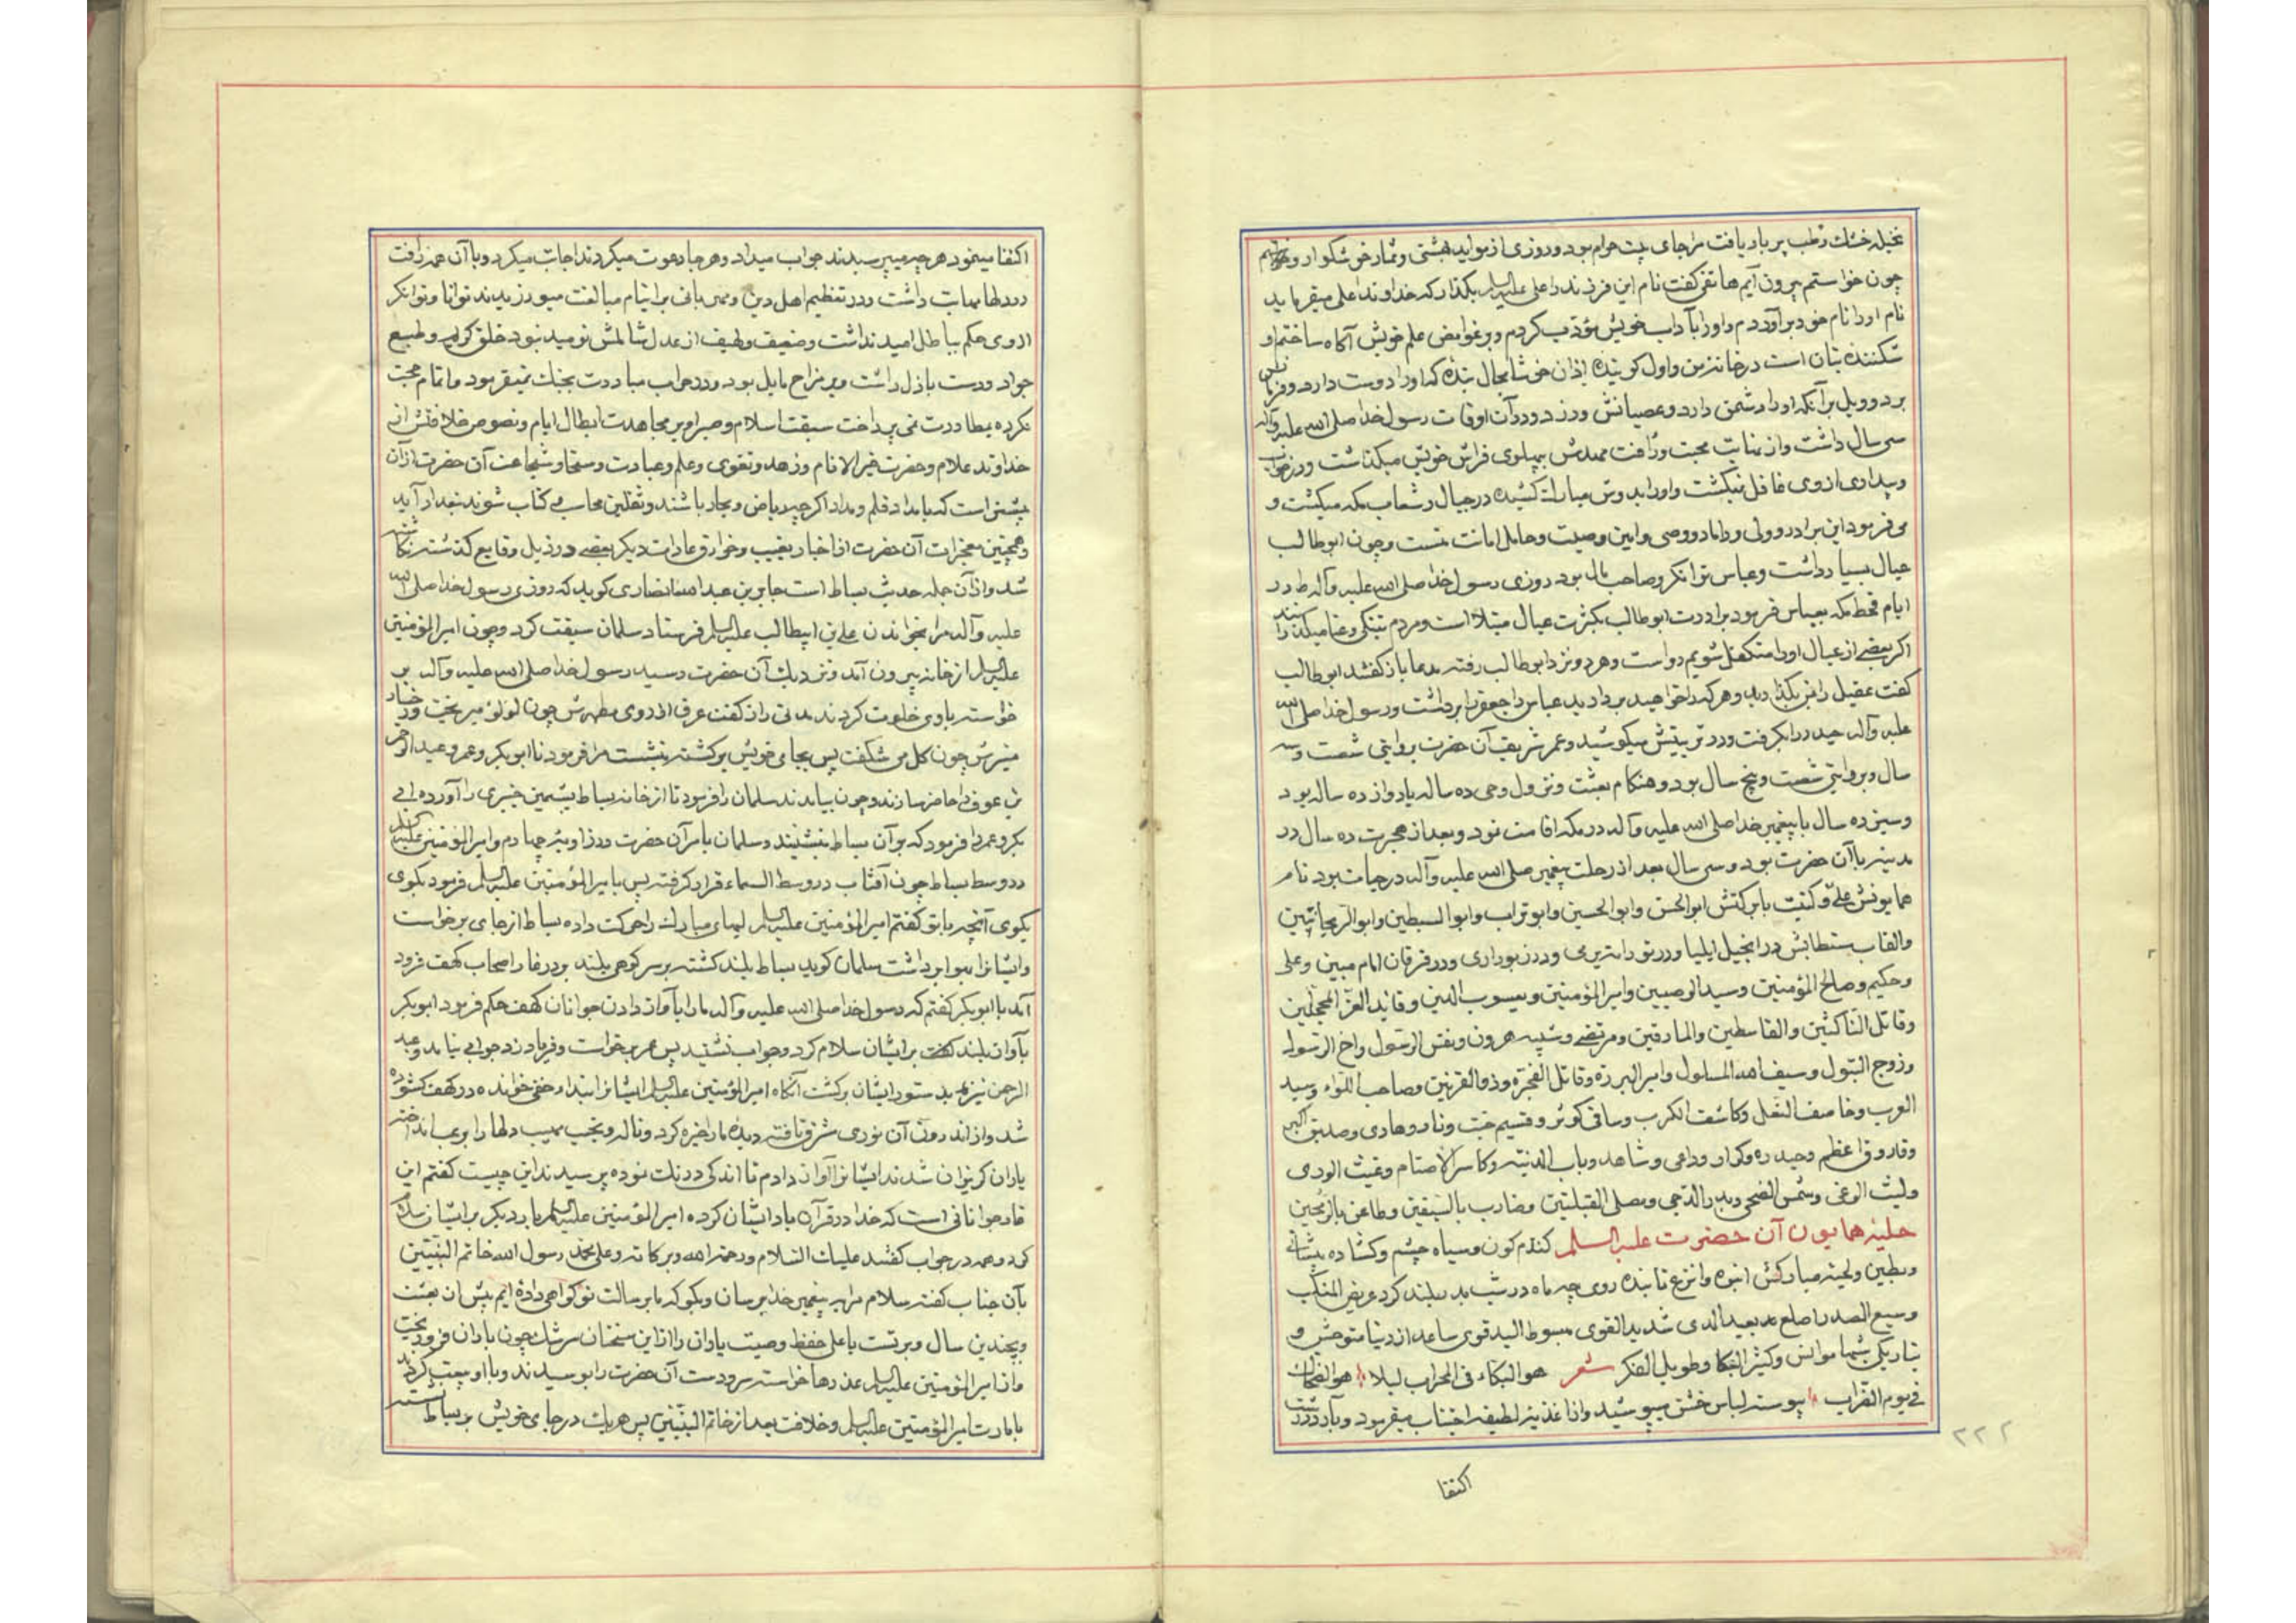 نخیله خشک رطب پر بار یافت مرا جای بیت حرام بود و روزی از موایه بهشتی و ثمار خوشگوار و خواستم
چون خواستم بیرون آیم هاتفی گفت نام این فرزند را علی علیه السلم بگذار که خداوند اعلی میفرماید
نام او را از نام خود برآوردم و او را بآداب خویش مؤدب کردم و بر غوامض علم خویش آگاه ساختم و
شکننده بتان است در خانه من و اول گوینده اذان خوشا بحال بنده که او را دوست دارد و فرمان
برد و ویل بر آنکه او را دشمن دارد و عصیانش ورزد و در آن اوقات رسول خدا صلی الله علیه وآله
سی سال داشت و از نهایت محبت و رافت مهدش بپهلوی فراش خویش میگذاشت و در خواب
و بیداری از وی غافل نمیگشت و او را بدوش مبارک کشیده در جبال و شعاب مکه میگشت و
می فرمود این برادر و ولی و داماد و وصی و امین وصیت و حامل امانت منست و چون ابوطالب
عیال بسیار داشت و عباس توانگر و صاحب مال بود روزی رسول خدا صلی الله علیه وآله در
ایام قحط مکه بعباس فرمود برادرت ابوطالب بکثرت عیال مبتلا است و مردم بتنگی و عنا میگذرانند
اگر بعضی از عیال او را متکفل شویم رواست و هر دو نزد ابوطالب رفته مدعا باز گفتند ابوطالب
گفت عقیل را بمن بگذارید و هر که را خواهید بردارید عباس جعفر را برداشت و رسول خدا صلی الله
علیه وآله حیدر را بگرفت و در تربیتش میکوشید و عمر شریف آن حضرت بروایتی شصت و سه
سال و بروایتی شصت و پنج سال بود و هنگام بعثت و نزول وحی ده ساله یا دوازده ساله بود
و سیزده سال با پیغمبر خدا صلی الله علیه وآله در مکه اقامت نمود و بعد از هجرت ده سال در
مدینه با آن حضرت بود و سی سال بعد از رحلت پیغمبر صلی الله علیه وآله در حیات بود نام
همایونش علی و کنیت با برکتش ابوالحسن و ابوالحسین و ابوتراب و ابوالسبطین و ابوالریحانتین
والقاب مستطابش در انجیل ایلیا و در توراة بری و در زبور اری و در فرقان امام مبین و علی
و حکیم و صالح المؤمنین و سید الوصیین و امیر المؤمنین و یعسوب الدین و قائد الغر المحجلین
و قاتل الناکثین والقاسطین والمارقین و مرتضی و شبیه هرون و نفس الرسول و اخ الرسول
و زوج البتول و سیف الله المسلول و امیر البررة و قاتل الفجرة و ذوالقرنین و صاحب اللواء و سید
العرب و خاصف النعل و کاشف الکرب و ساقی کوثر و قسیم جنت و نار و هادی و صدیق اکبر
و فاروق اعظم و حیدره و کرار و داعی و شاهد و باب المدینه و کاسر الاصنام و غیث الوری
و لیث الوغی و شمس الضحی و بدر الدجی و مصلی القبلتین و ضارب بالسیفین و طاعن بالرمحین
حلیه همایون آن حضرت علیه السلم گندم گون و سیاه چشم و گشاده پیشانی
و بطین و لحیه مبارکش انبوه و انزع تابنده روی چه ماه در شب بدر بلند گرد عریض المنکب
وسیع الصدر اصلع بعید المدی شدید القوی مبسوط الید قوی ساعد از دنیا متوحش و
بتاریکی شبها موانس و کثیر البکا و طویل الفکر شعر هو البکاء فی المحراب لیلا هو الضحاک
فی یوم الضراب پیوسته لباس خشن میپوشید و از اغذیه لطیفه اجتناب میفرمود و بآرد درشت
۲۲۲
اکتفا
اکتفا مینمود هر چه میپرسیدند جواب میداد و هر جا دعوت میکردند اجابت میکرد و با آن همه رافت
در دلها مهابت داشت و در تعظیم اهل دین و مهربانی بر ایتام مبالغت میورزیدند توانا و توانگر
از وی حکم بباطل امید نداشت و ضعیف و لهیف از عدل شاملش نومید نبود خلق کریم و طبع
جواد و دست باذل داشت و به مزاح مایل بود و در حراب مبادرت بجنگ نمیفرمود و اتمام حجت
نکرده بمطاردت نمی پرداخت سبقت اسلام و صبر او بر مجاهدت ابطال ایام و نصوص خلافتش از
خداوند علام و حضرت خیر الانام و زهد و تقوی و علم و عبادت و سخا و شجاعت آن حضرت از آن
بیشتر است که بامداد قلم و مداد اگر چه ریاض و بحار باشند و ثقلین محاسب و کتاب شوند بتعداد آید
و همچنین معجزات آن حضرت از اخبار بغیب و خوارق عادات دیگر بعضی در ذیل وقایع گذشته نگاشته
شد و از آن جمله حدیث بساط است جابر بن عبدالله انصاری گوید که روزی رسول خدا صلی الله
علیه وآله مرا بخواندن علی بن ابیطالب علیه السلم فرستاد سلمان سبقت کرد و چون امیر المؤمنین
علیه السلم از خانه بیرون آمد و نزدیک آن حضرت رسید رسول خدا صلی الله علیه وآله بر
خواسته با وی خلوت کردند مدتی راز گفت عرق از روی مطهرش چون لؤلؤ میریخت و رخسار
منیرش چون گل می شکفت پس بجای خویش برگشته بنشست مرا فرمود تا ابوبکر و عمر و عبدالرحمن
بن عوف را حاضر سازند و چون بیامدند سلمان را فرمود تا از خانه بساط پشمین خیبری را آورده ابی
بکر و عمر را فرمود که بر آن بساط بنشینند و سلمان بامر آن حضرت در زاویه چهارم و امیر المؤمنین علیه السلم
در وسط بساط چون آفتاب در وسط السماء قرار گرفته پس با میرالمؤمنین علیه السلم فرمود بگوی
بگوی آنچه با تو گفتم امیر المؤمنین علیه السلم لبهای مبارک را حرکت داده بساط از جای برخواست
و ایشانرا بهوا برداشت سلمان گوید بساط بلند گشته بر سر کوهی بلند بر در غار اصحاب کهف فرود
آمد با ابوبکر گفتم که رسول خدا صلی الله علیه وآله ما را بآواز دادن جوانان کهف حکم فرمود ابوبکر
بآواز بلند گفت بر ایشان سلام کرد و جواب نشنید پس عمر برخواست و فریاد زد جوابی نیامد و عبد
الرحمن نیز بدستور ایشان برگشت آنگاه امیر المؤمنین علیه السلم ایشانرا بنداء خفی خوانده در کهف گشوده
شد و از اندرون آن نوری شرق یافته دیده ما را خیره کرد و ناله و تعجب مهیب دلها را برعب انداخت
یاران گریزان شدند ایشانرا آواز دادم تا اندکی درنگ نموده پرسیدند این چیست گفتم این
غار جوانانی است که خدا در قرآن یاد ایشان کرده امیر المؤمنین علیه السلم بار دیگر بر ایشان سلام
کرد و همه در جواب گفتند علیک السلام و رحمة الله و برکاته و علی محمد رسول الله خاتم النبیین
بآن جناب گفته سلام ما را به پیغمبر خدا برسان و بگو که ما برسالت تو گواهی داده ایم پیش از بعثت
و بچندین سال و بر تست یا علی حفظ وصیت یاران را از این سخنان سرشک چون باران فرو ریخت
و از امیر المؤمنین علیه السلم عذرها خواسته سر و دست آن حضرت را بوسیدند و با او بیعت کردند
بامارت امیر المؤمنین علیه السلم و خلافت بعد از خاتم النبیین پس هر یک در جای خویش بر بساط نشسته